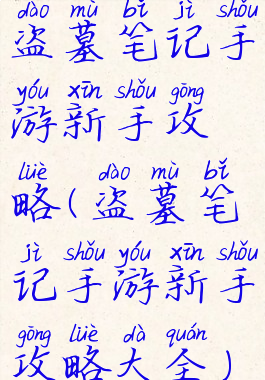 dào mù bǐ jì shǒu
盗墓笔记手
yóu xīn shǒu gōng
游新手攻
lüè dào mù bǐ
略(盗墓笔
jì shǒu yóu xīn shǒu
记手游新手
gōng lüè dà quán
攻略大全)